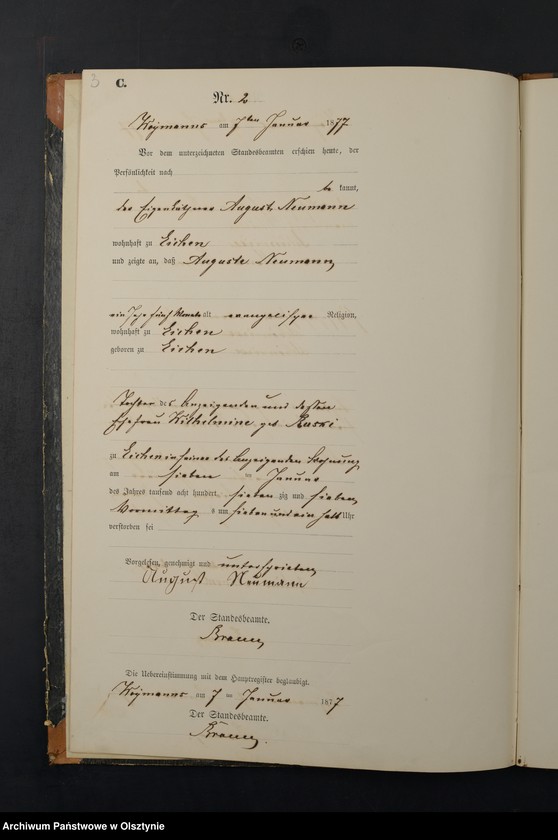 3
C.
Nr. 2
am 7ten Januar 1877
Vor dem unterzeichneten Standesbeamten erschien heute, der
Persönlichkeit nach
be kannt,
der Eigenkäthner August Neumann
wohnhaft zu Eichen
und zeigte an, daß Auguste Neumann,
ein Jahr fünf Monate alt evangelischer Religion,
wohnhaft zu Eichen
geboren zu Eichen
Tochter des Anzeigenden und dessen
Ehefrau Wilhelmine geb.
zu Eichen in seiner des Anzeigenden Wohnung
am sieben ten Januar
des Jahres tausend acht hundert sieben zig und sieben
Vormittag s um sieben und ein halb Uhr
verstorben sei
Vorgelesen, genehmigt und unterschrieben
August Neumann
Der Standesbeamte.
Die Uebereinstimmung mit dem Hauptregister beglaubigt.
am 7 ten Januar 1877
Der Standesbeamte.
Archiwum Państwowe w Olsztynie